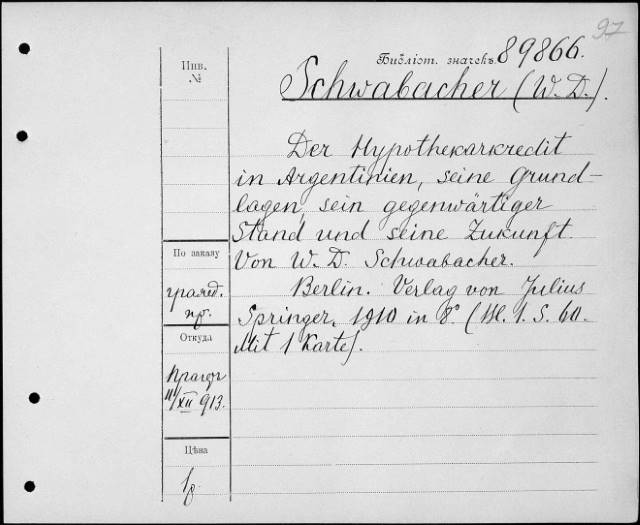 97
Библіот. значекъ 89866.
Schwabacher (W. D.).
Инв.
№
Der Hypothekarkredit
in Argentinien, seine Grund-
lagen, sein gegenwärtiger
Stand und seine Zukunft.
Von W. D. Schwabacher.
Berlin. Verlag von Julius
Springer. 1910 in 8° (Bl. 1. S. 60.
Mit 1 Karte).
По заказу
гражд.
пр.
Откуда
11/XII 913.
Цѣна